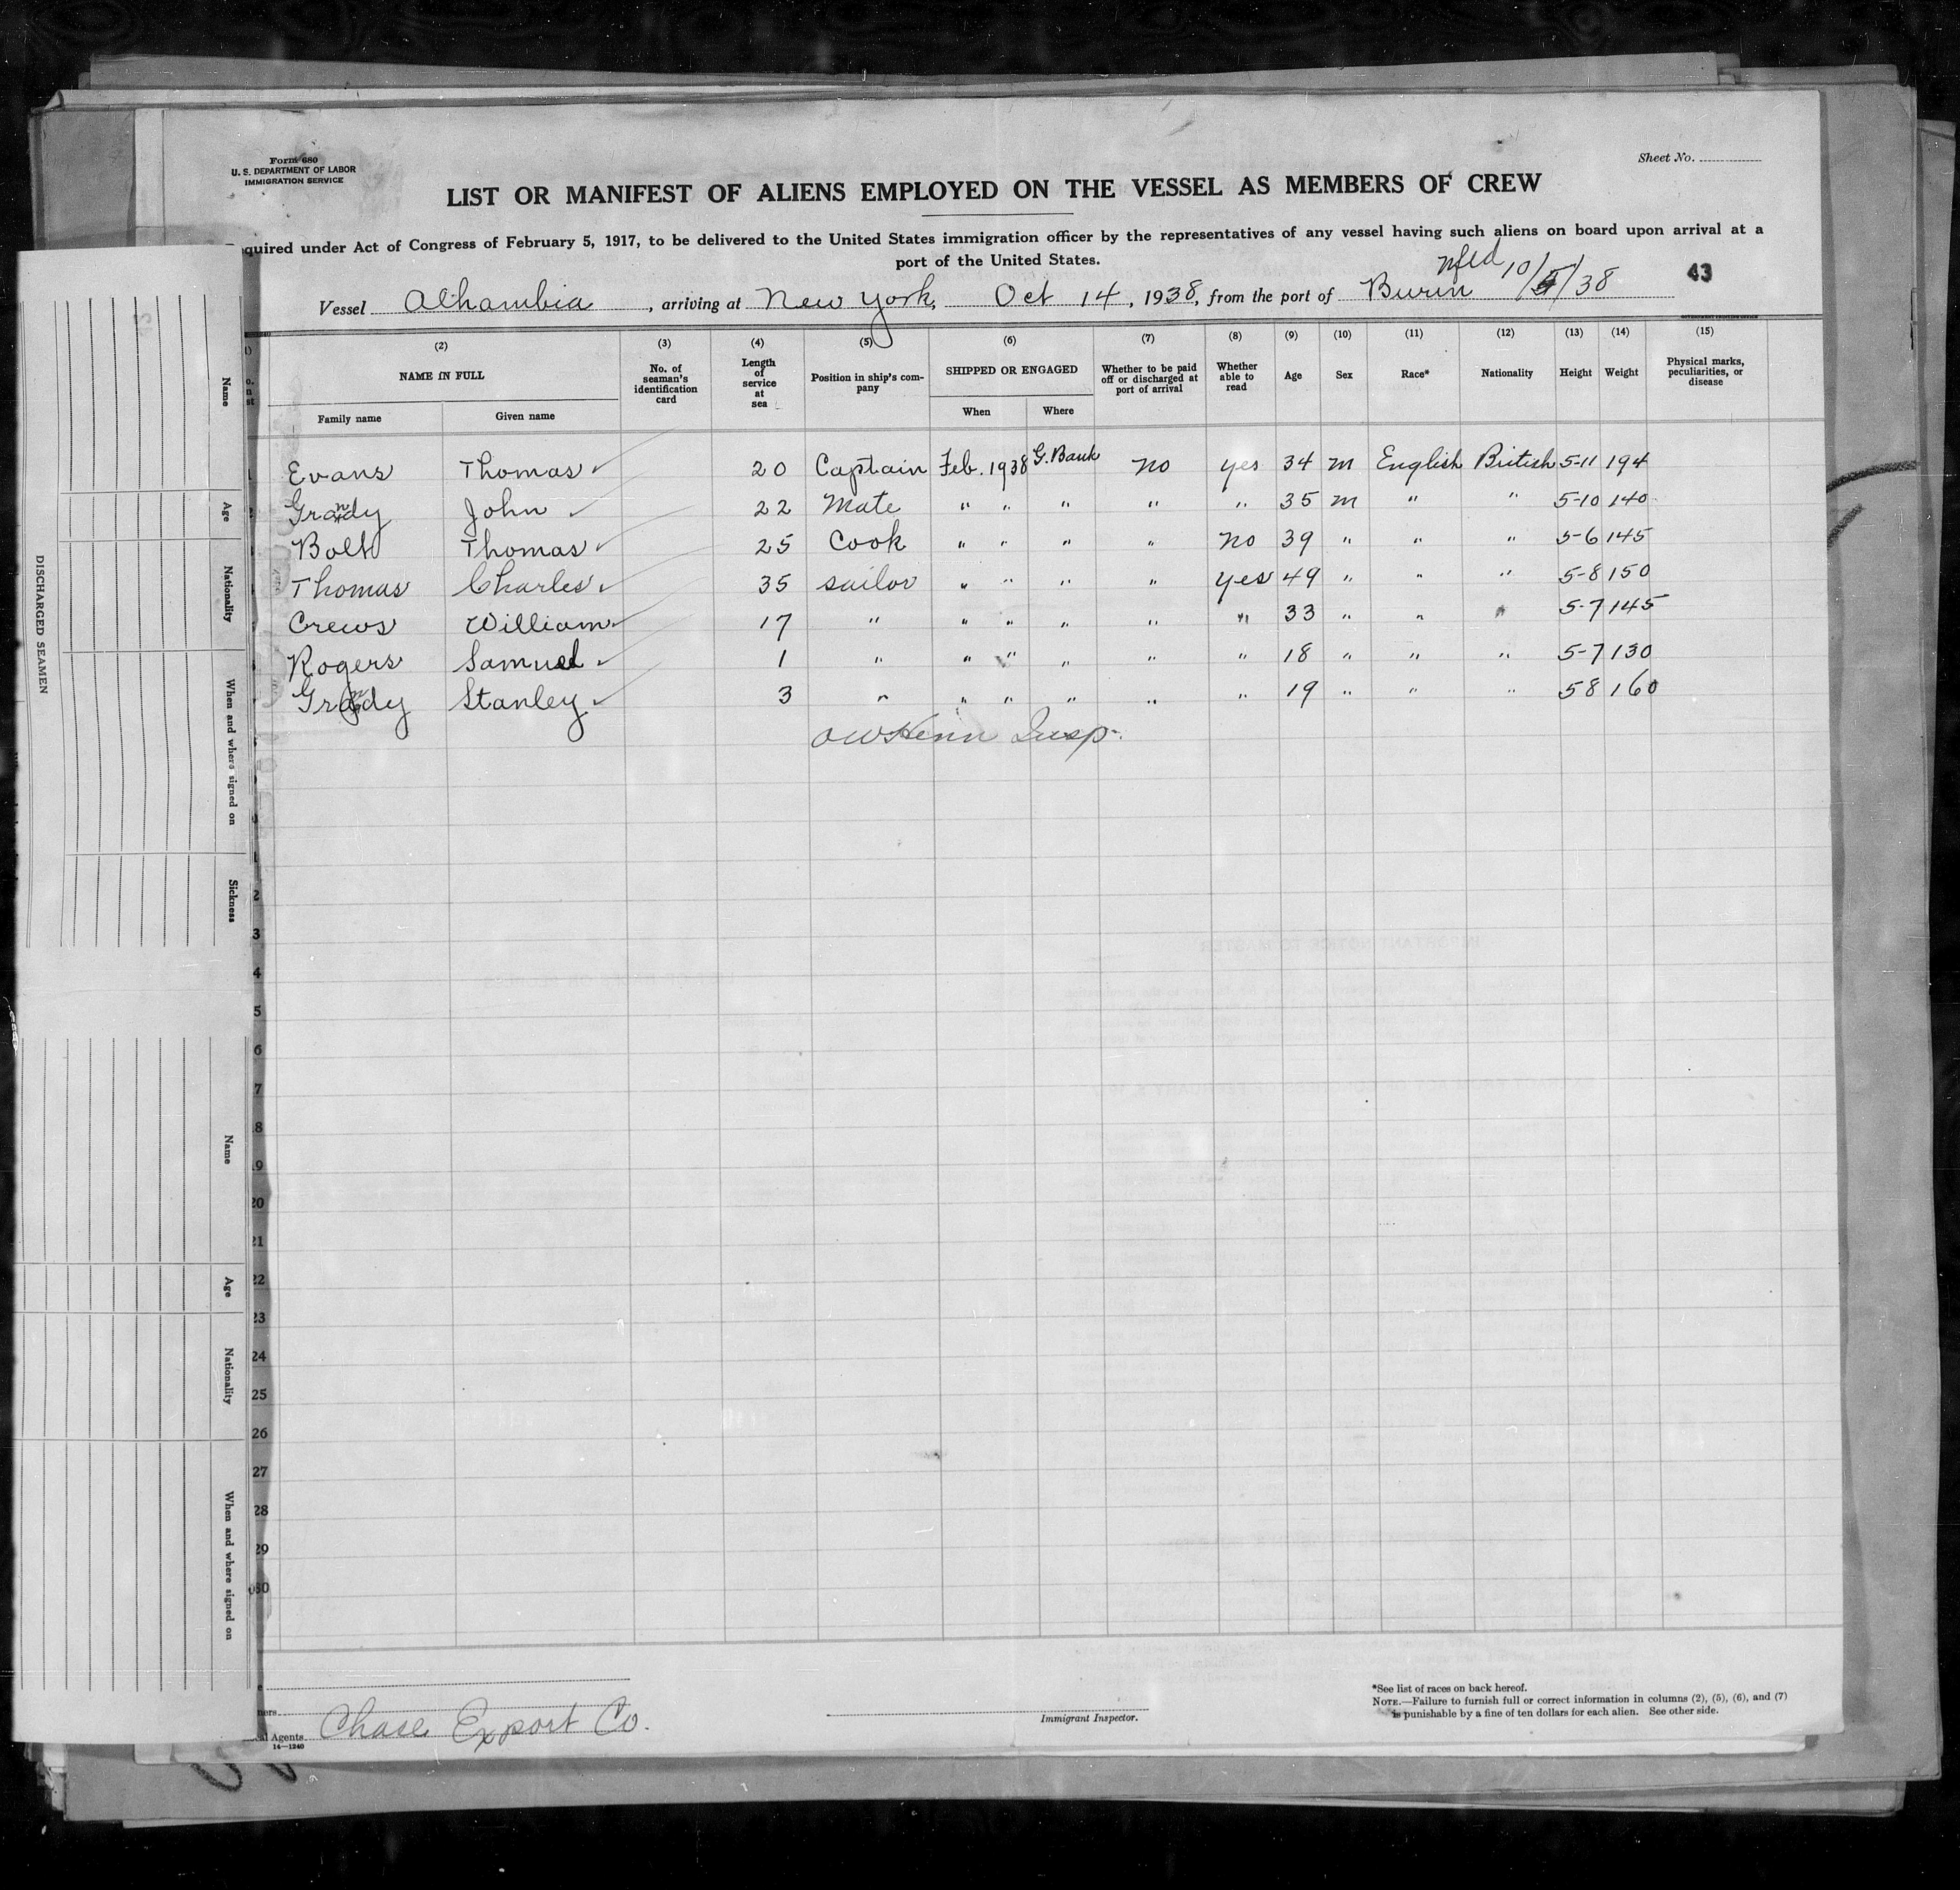 Form 680
U. S. DEPARTMENT OF LABOR
IMMIGRATION SERVICE
Sheet No.
LIST OR MANIFEST OF ALIENS EMPLOYED ON THE VESSEL AS MEMBERS OF CREW
quired under Act of Congress of February 5, 1917, to be delivered to the United States immigration officer by the representatives of any vessel having such aliens on board upon arrival at a
port of the United States.
Vessel Alhambia, arriving at New York, Oct 14, 1938, from the port of Burin nfld 10/5/38
43
(2) (3) (4) (5) (6) (7) (8) (9) (10) (11) (12) (13) (14) (15)
NAME IN FULL
Family name
Given name
No. of seaman's identification card
Length of service at sea
Position in ship's company
SHIPPED OR ENGAGED
When
Where
Whether to be paid off or discharged at port of arrival
Whether able to read
Age
Sex
Race*
Nationality
Height
Weight
Physical marks, peculiarities, or disease
Evans Thomas ✓ 20 Captain Feb. 1938 G. Bank no yes 34 m English British 5-11 194
Grandy John ✓ 22 Mate " " " " " 35 m " " 5-10 140
Bolt Thomas ✓ 25 Cook " " " " no 39 " " " 5-6 145
Thomas Charles ✓ 35 sailor " " " " yes 49 " " " 5-8 150
Crews William ✓ 17 " " " " " " 33 " " " 5-7 145
Rogers Samuel ✓ 1 " " " " " " 18 " " " 5-7 130
Grandy Stanley ✓ 3 " " " " " " 19 " " " 58 160
Insp.
2
3
4
5
6
7
18
19
20
21
22
23
24
25
26
27
28
29
30
Agents Chase Export Co.
14—1240
Immigrant Inspector.
*See list of races on back hereof.
NOTE.—Failure to furnish full or correct information in columns (2), (5), (6), and (7)
is punishable by a fine of ten dollars for each alien. See other side.
DISCHARGED SEAMEN
Name
Age
Nationality
When and where signed on
Sickness
Name
Age
Nationality
When and where signed on